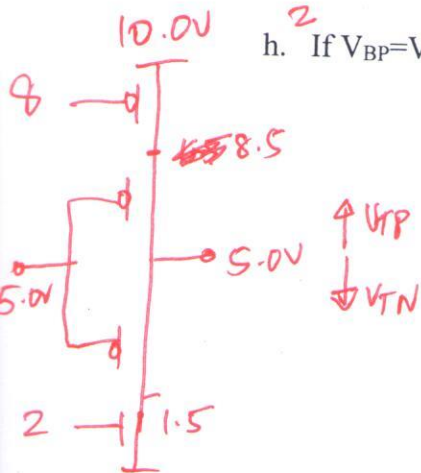 10.0V
2
h. If V_BP=V
8
8.5
V_TP
5.0V
5.0V
V_TN
2
1.5